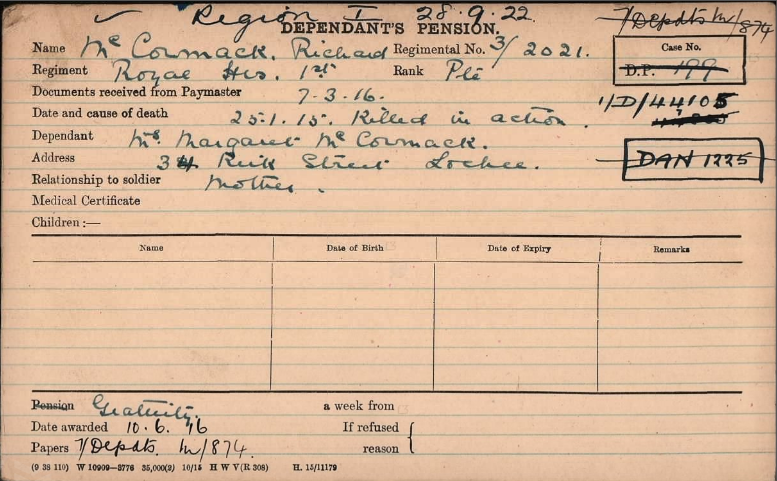 ✓ Region I 28.9.22. 7/Depdts M/874
DEPENDANT'S PENSION.
Name Mc Cormack, Richard Regimental No. 3/2021.
Case No.
D.P. 199
Regiment Royal Hrs. 1st Rank Pte
Documents received from Paymaster 7-3-16.
1/D/44105
Date and cause of death 25.1.15. Killed in action.
Dependant Mrs Margaret Mc Cormack.
DAN 1225
Address Street Lochee.
Relationship to soldier Mother.
Medical Certificate
Children :—
Name Date of Birth Date of Expiry Remarks
Pension Gratuity. a week from
Date awarded 10.6.16 If refused
Papers 7/Depdts. M/874. reason
(9 38 110) W 10909—3776 35,000(2) 10/15 H W V(R 308) H. 15/11179